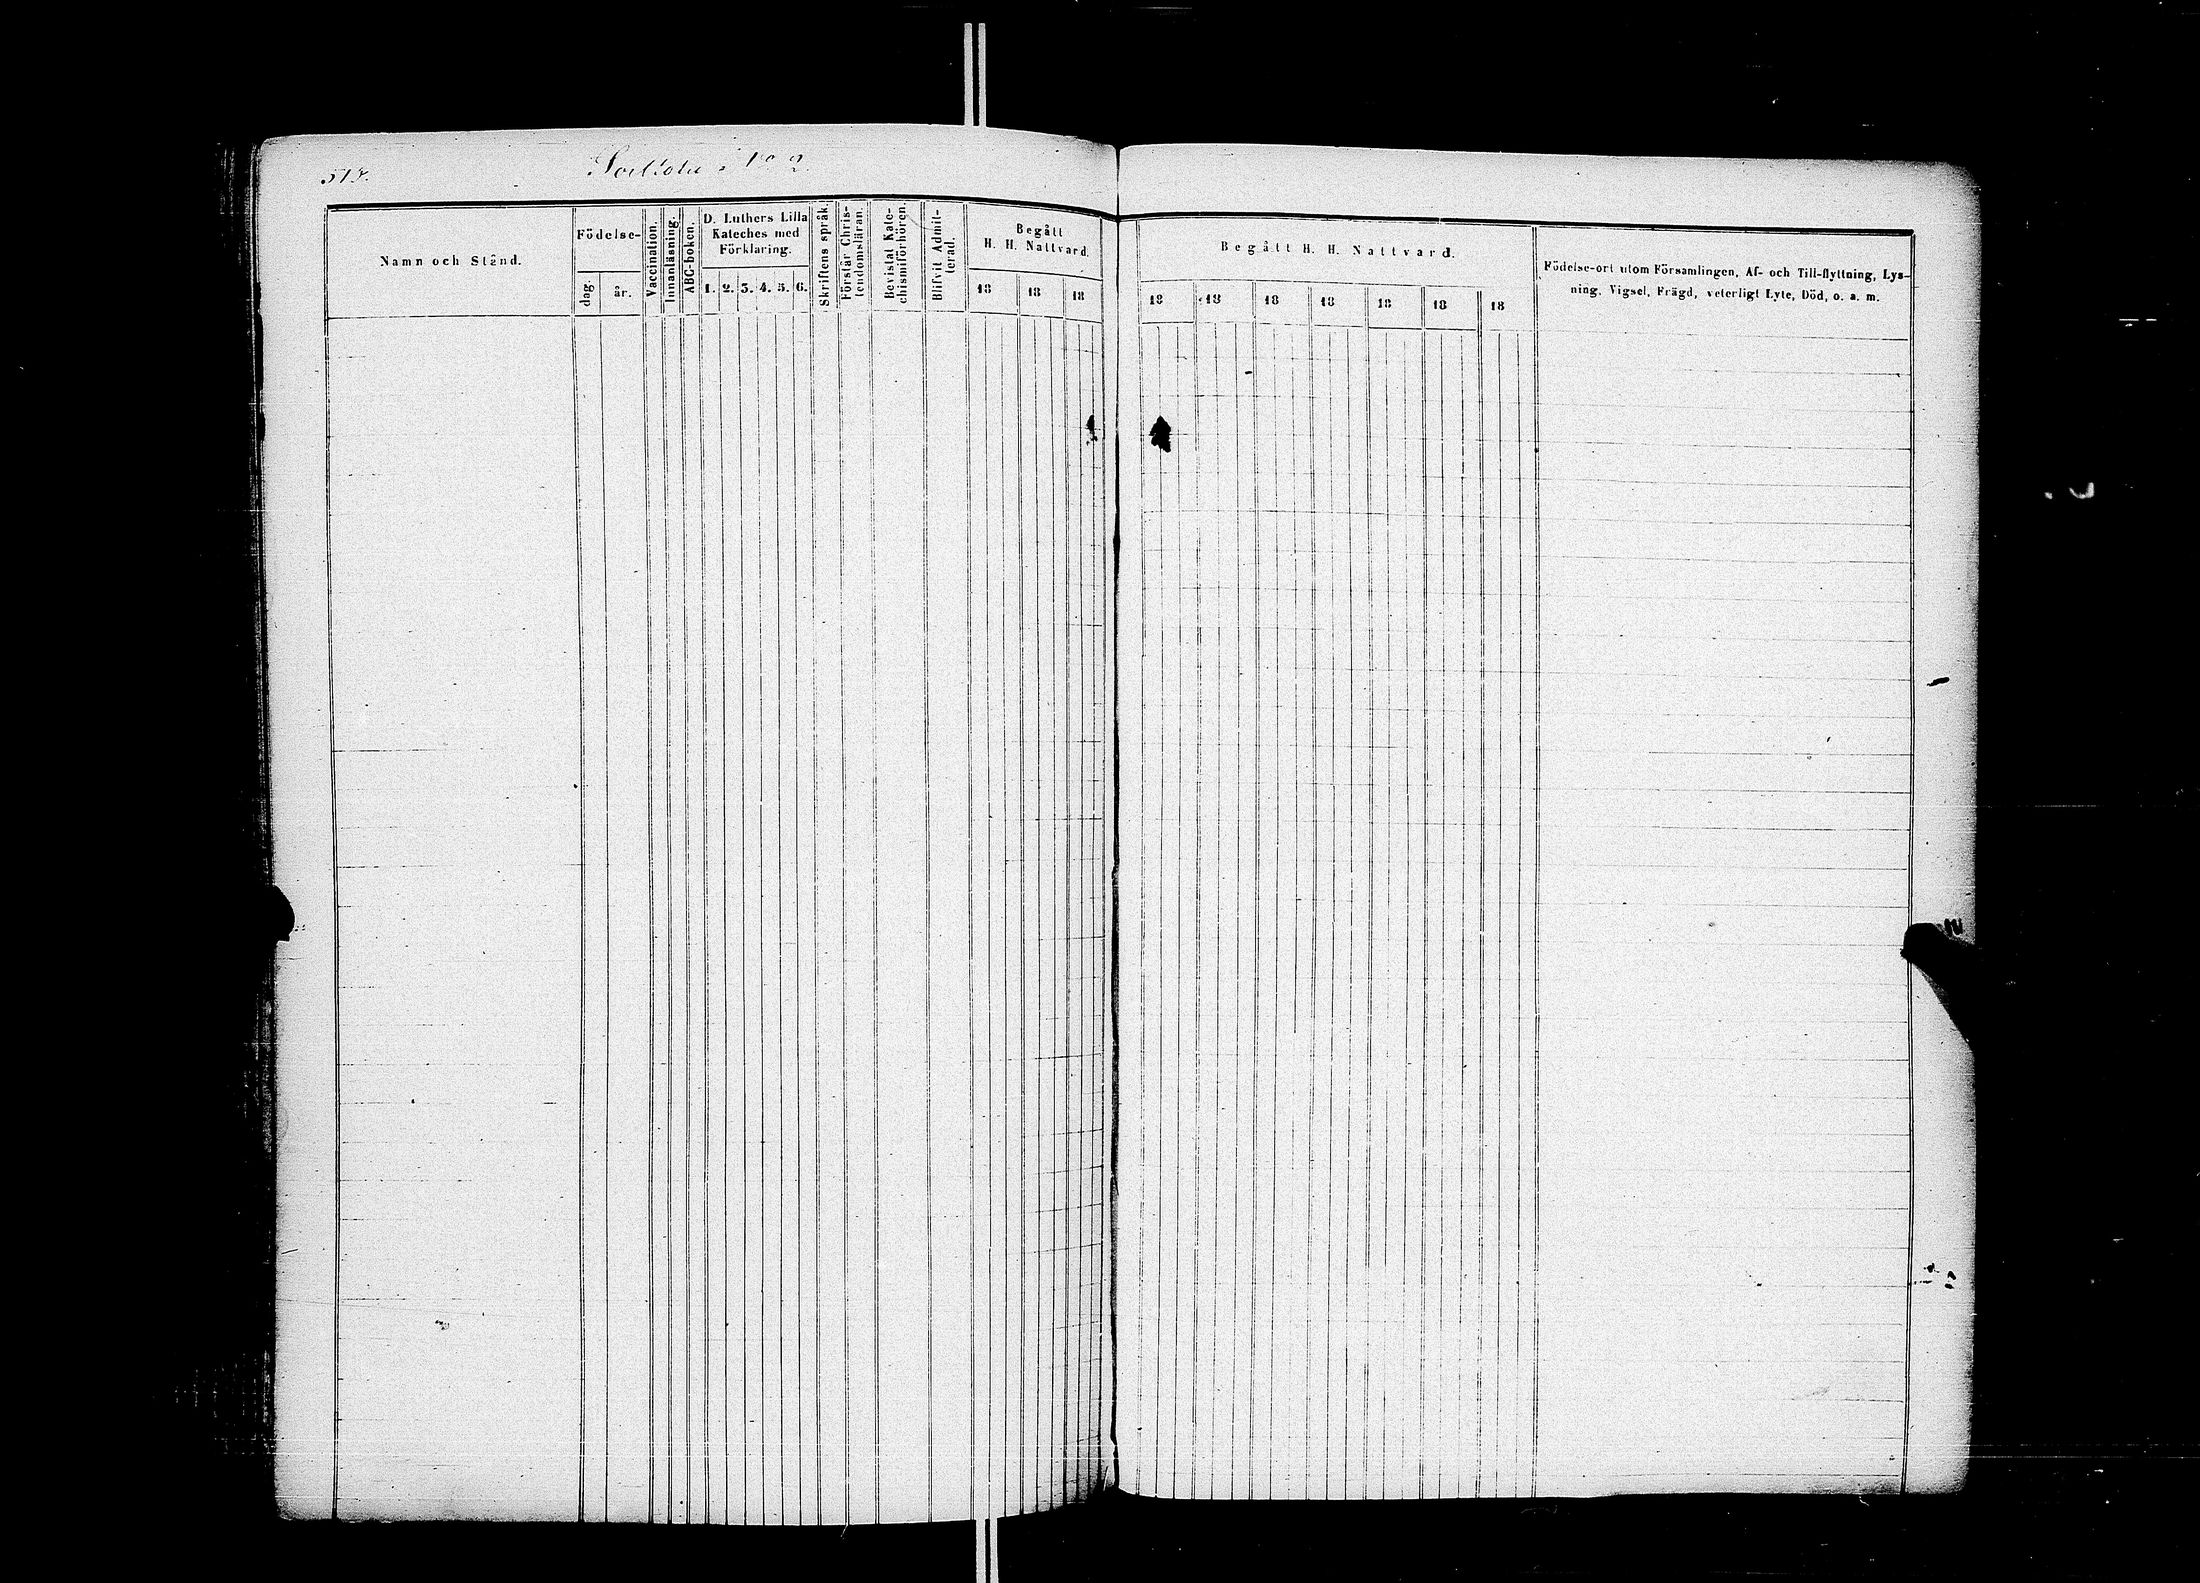 Nº 2.
Namn och Stånd.
Födelse-
dag.
år.
Vaccination.
Innanläsning.
ABC-boken.
D. Luthers Lilla
Kateches med
Förklaring.
1. 2. 3. 4. 5. 6.
Skriftens språk.
Förstår Chris-
tendomsläran.
Bevistat Kate-
chismiförhören.
Blifvit Admit-
terad.
Begått
H. H. Nattvard.
18 18 18
Begått H. H. Nattvard.
18 18 18 18 18 18 18
Födelse-ort utom Församlingen, Af- och Till-flyttning, Lys-
ning, Vigsel, Frägd, veterligt Lyte, Död, o. a. m.